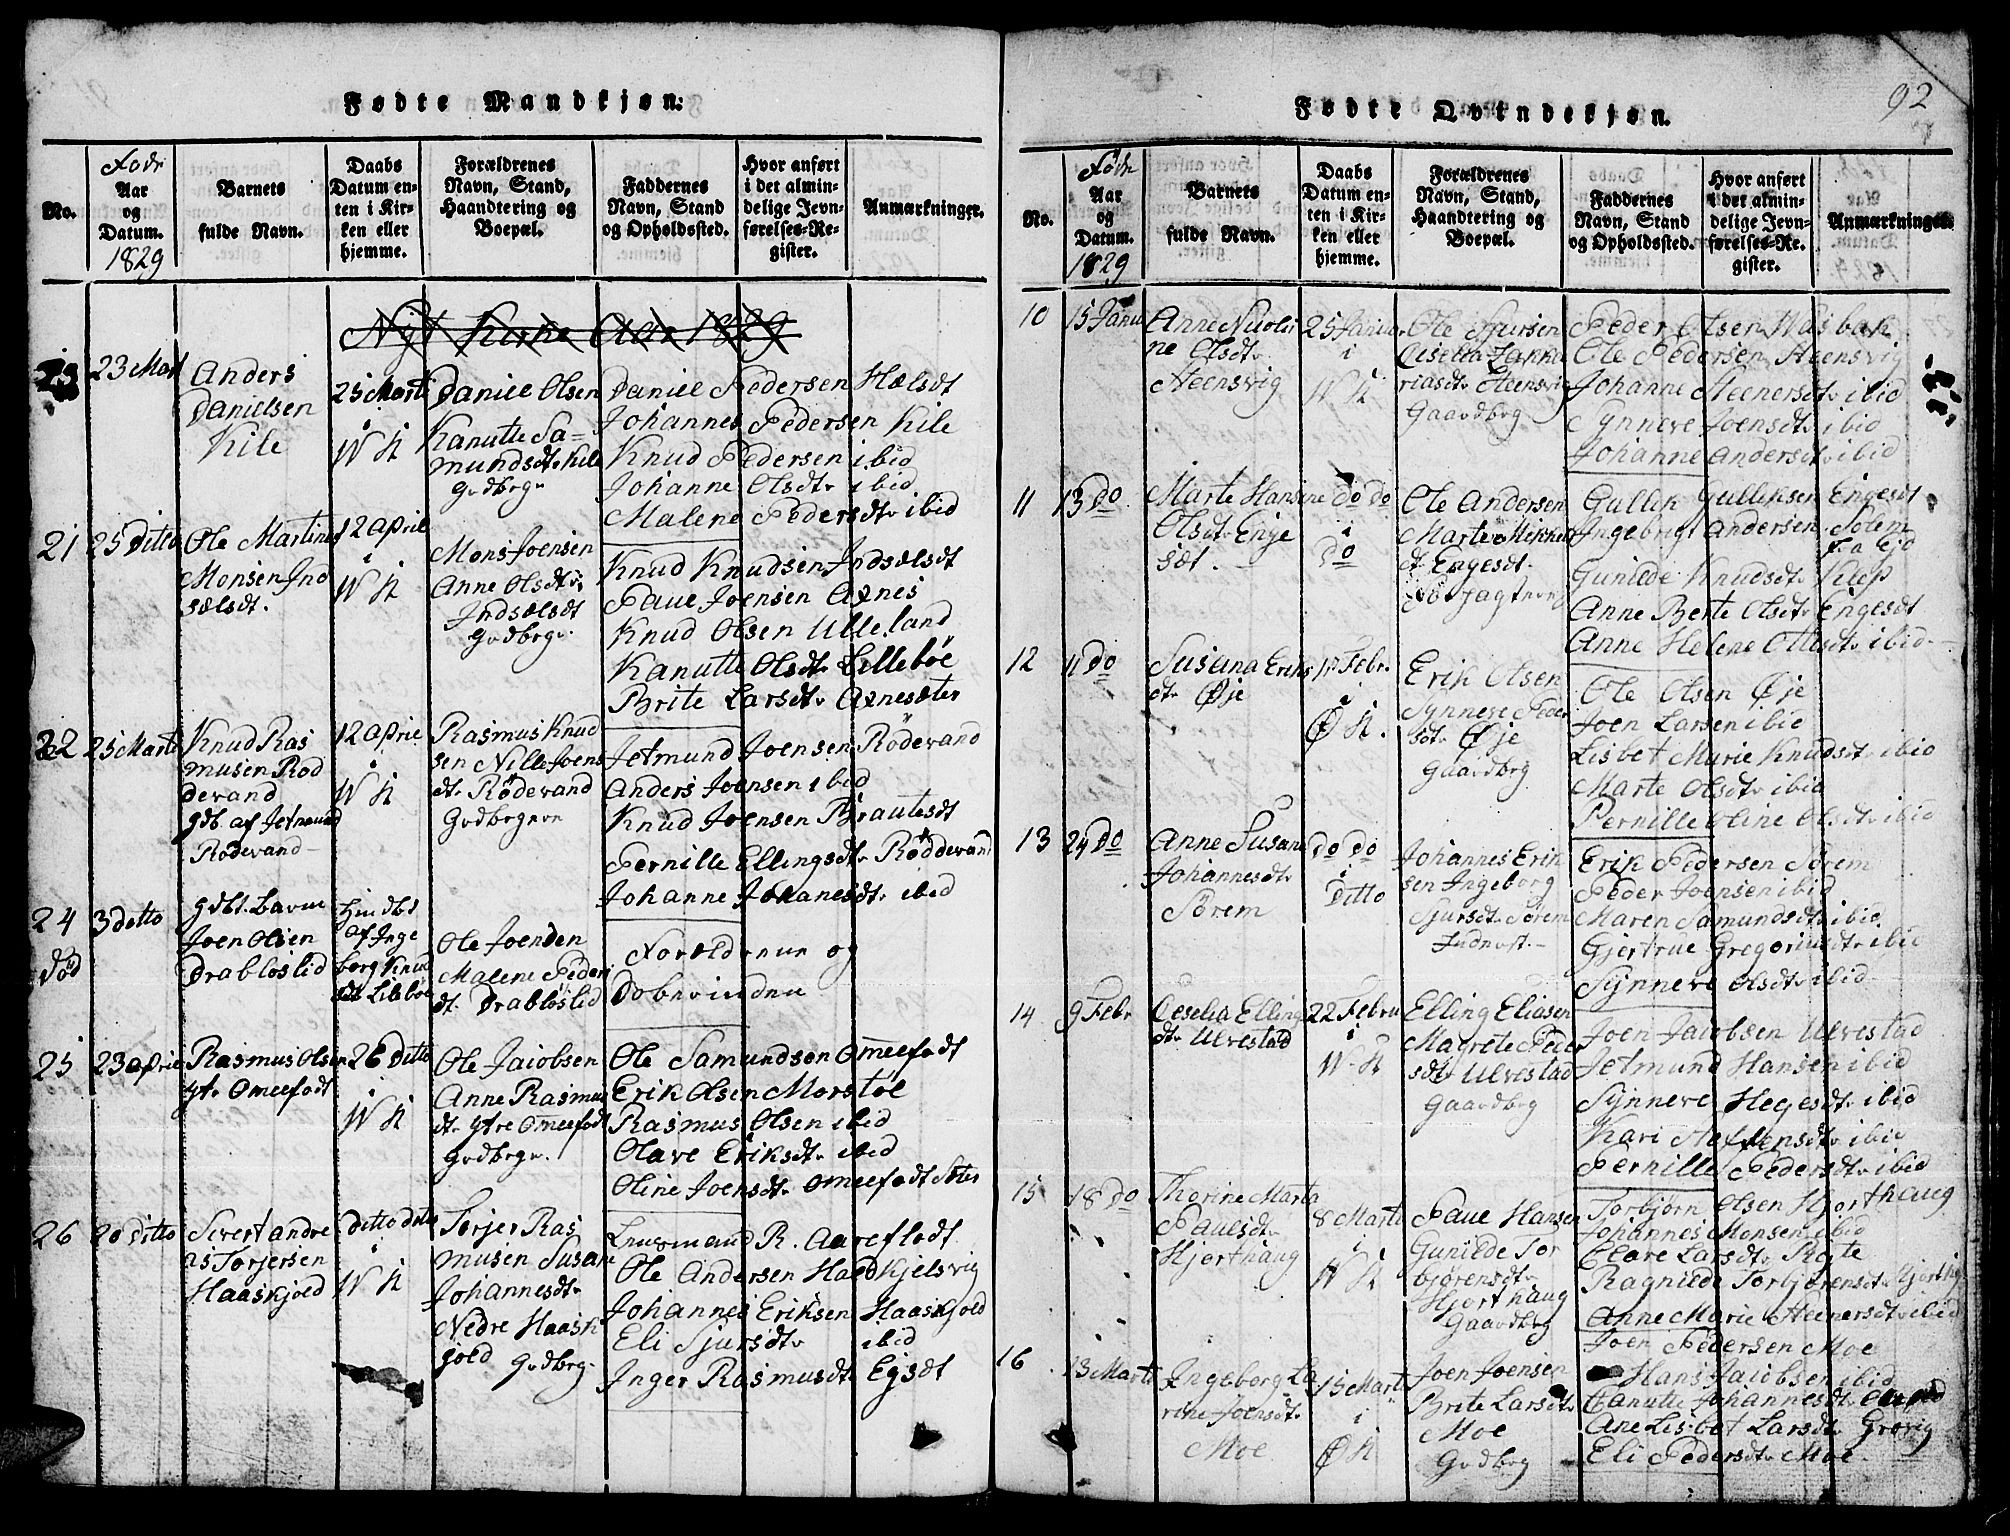 Fødte Mandkjøn.
No.
Fødr
Aar
og
Datum.
1829
Barnets
fulde Navn.
Daabs
Datum en-
ten i Kir-
ken eller
hjemme.
Forældrenes
Navn, Stand,
Haandtering og
Boepæl.
Faddernes
Navn, Stand
og Opholdssted.
Hvor anført
i det almin-
delige Jevn-
førelses-Re-
gister.
Anmærkninger.
Nÿt Kirke Aar 1829
23 Mart
Anders
Danielsen
Kile
25 Marti
i
W K
Daniel Olsen
Kanutte Sa=
mundsdt. Kile
Grdbrgr
Daniel Pedersen Hælsdt
Johannes Pedersen Kile
Knud Pedersen ibid
Johanne Olsdt. ibid
Malene Pedersdt. ibid
21
25 Ditto
Ole Martinus
Monsen Ind
sælsdt.
12 April
i
W K
Mons Joensen
Anne Olsdt.
Indsælsdt
Grdbrgr.
Knud Knudsen Indsælsdt
Paul Joensen Axnis
Knud Olsen Ulleland
Kanutte Olsdt. Lillebøe
Brite Larsdt. Axnesæter
22
25 Marti
Knud Ras
musen Rød
devand
gdb. af Jetmund
Rødevand
12 April
i
W K
Rasmus Knud
sen Nille Joens
dt. Rødevand
Grdbrgrn
Jetmund Joensen Rødevand
Anders Joensen ibid
Knud Joensen Brautesdt
Pernille Ellingsdt. Røddevand
Johanne Johanesdt. ibid
24
Død
3 ditto
gdbt. Barne
Joen Olsen
Drabløslid
Hiudbt
af Inge
borg Knud
sdt. Lilebøe
Ole Joensen
Malene Peders
dt. Drabløslid
Forældrene og
Doberinden
25
23 April
Rasmus Olsen
yt. Omeefodt
26 Ditto
i
W K
Ole Jacobsen
Anne Rasmus
dt. ytre Omeefodt
Grdbrgr.
Ole Samundsøn Omeefodt
Erik Olsen Morstøl
Rasmus Olsen ibid
Olave Eriksdt. ibid
Oline Joensdt. Omeefodt Sæter
26
20 Ditto
Sivert Andre
as Torjersen
Haaskjold
Ditto Ditto
i
W K
Torjer Ras
musen Susane
Johannesdt.
Nedre Haask
jold Grdbrg.
Lensmand R. Aareflodt
Ole Andersen Haedkjelsvig
Johannes Eriksen Haaskjold
Eli Sjursdt. ibid
Inger Rasmusdt. Egsdt
92
Fødte Qvindekjøn.
No.
Fødr
Aar
og
Datum.
1829
Barnets
fulde Navn.
Daabs
Datum en-
ten i Kir-
ken eller
hjemme.
Forældrenes
Navn, Stand,
Haandtering og
Boepæl.
Faddernes
Navn, Stand
og Opholdssted.
Hvor anført
i det almin-
delige Jevn-
førelses-Re-
gister.
Anmærkninger.
10
15 Janu
Anne Nicoli
ne Olsdt.
Steensvig
25 Januar
i
W K
Ole Sjursen
Ciselia Zanna
riasdt. Steensvig
Gaardbrg
Peder Olsen Wasbak
Ole Pedersen Steensvig
Johanne Steenersdt. ibid
Synnere Joensdt. ibid
Johanne Andersdt. ibid
11
13 Do
Marte Hansine
Olsdt. Enge
sæt.
Do Do
i
Do
Ole Andersen
Marte Mikkels
dt. Engesdt.
Gullik Gulliksen Engesdt
Ingebrigt Andersen Solem
Gunilde Knudsdt. Kilsp
Anne Berte Olsdt. Engesdt
Anne Helene Ottesdt. ibid
12
11 Do
Susana Eriks
dt. Øje
1 Febr.
i
Ø K.
Erik Olsen
Synnere Peder
sdt. Øje
Gaardbrg
Ole Olsen Øje
Joen Larsen ibid
Lisbet Marie Knudsdt. ibid
Marte Olsdt. ibid
Pernille Oline Olsdt. ibid
13
24 Do
Anne Susane
Johannesdt.
Sørem
Do Do
i
Ditto
Johannes Erik
sen Ingeborg
Sjursdt. Sørem
Indervst.
Erik Pedersen Sørem
Peder Joensen ibid
Maren Samundsdt. ibid
Gjertrue Gregoriusdt. ibid
Synnere Olsdt. ibid
14
9 Febr
Ceselia Elling
dt. Ulvestad
22 Febru
i
W K
Elling Eliasen
Magrete Peder
sdt. Ulvestad
Gaardbrg
Joen Jacobsen Ulvestad
Jetmund Hansen ibid
Synnere Hegesdt. ibid
Kari Steffensdt. ibid
Pernille Pedersdt. ibid
15
18 Do
Thorine Marta
Paulsdt.
Hjorthaug
8 Marti
i
W K
Paul Hansen
Gunilde Tor
bjørensdt.
Hjorthaug
Gaardbrg
Torbjørn Olsen Hjorthaug
Johannes Monsen ibid
Olave Larsdt. Røte
Ragnilde Torbjørensdt. Hjorthg
Anne Marie Steenersdt. ibid
16
13 Marti
Ingeborg La
rine Joensdt.
Moe
15 Marti
i
Ø K
Joen Joensen
Brite Larsdt.
Moe
Grdbrg
Joen Pedersen Moe
Hans Jacobsen ibid
Canutte Johannesdt.
Ane Lisbet Larsdt. Grøvig
Eli Pedersdt. Moe.